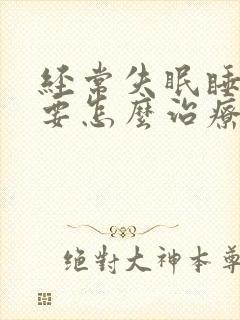 經常失眠睡
要怎麼治療
絕對大神本尊